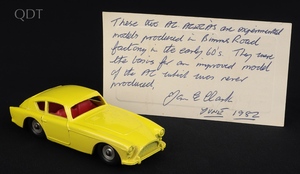 QDT
These two AC Acecas are experimental
models produced in Binns Road
factory in the early 60's. They were
the basis for an improved model
of the AC which was never
produced.
Ian E Clark
JUNE 1982